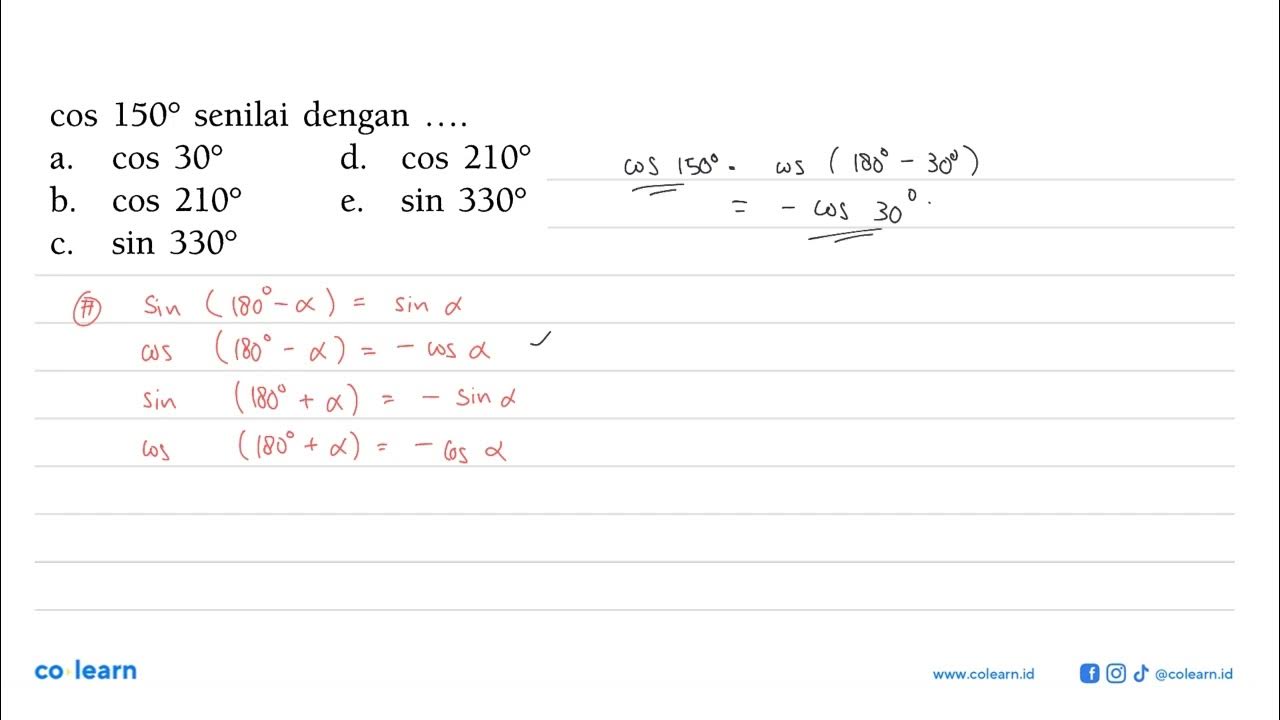 cos 150° senilai dengan ....
a. cos 30° d. cos 210°
b. cos 210° e. sin 330°
c. sin 330°
cos 150° = cos (180° - 30°)
= - cos 30°.
# sin (180° - α) = sin α
cos (180° - α) = - cos α ✓
sin (180° + α) = - sin α
cos (180° + α) = - cos α
co learn
www.colearn.id
@colearn.id